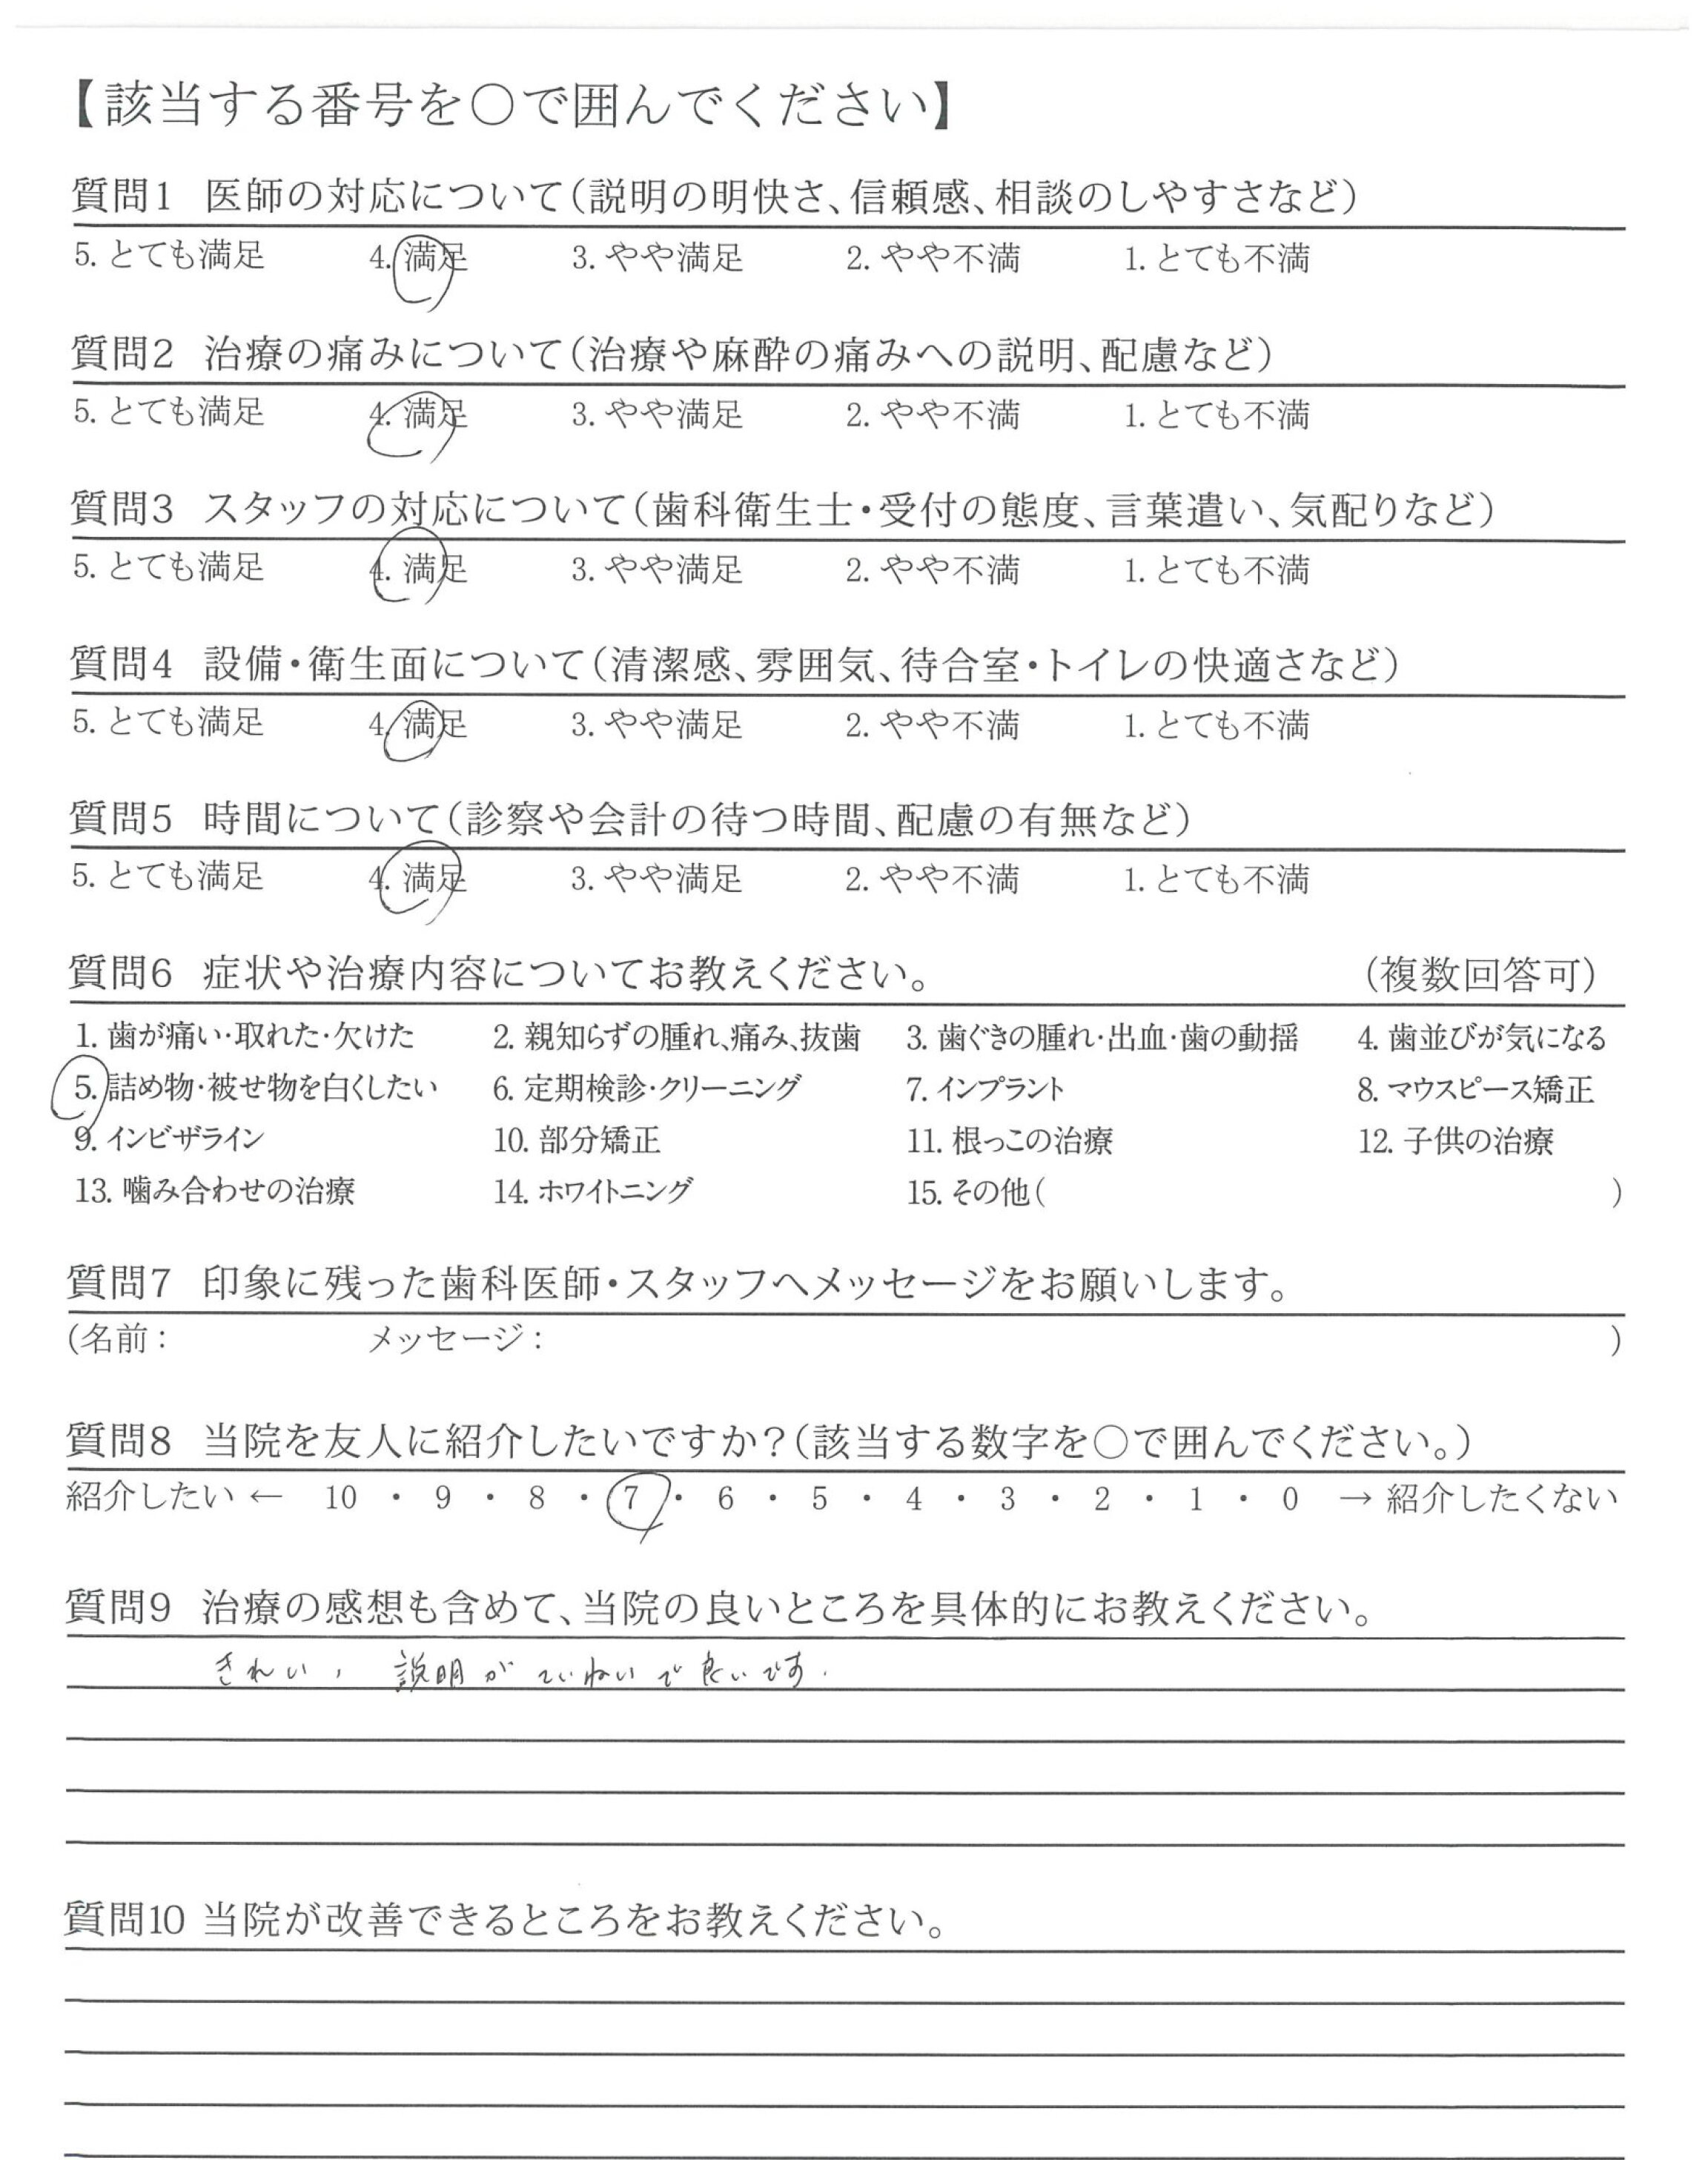 【該当する番号を○で囲んでください】
質問1 医師の対応について（説明の明快さ、信頼感、相談のしやすさなど）
5. とても満足 4. 満足 3. やや満足 2. やや不満 1. とても不満
質問2 治療の痛みについて（治療や麻酔の痛みへの説明、配慮など）
5. とても満足 4. 満足 3. やや満足 2. やや不満 1. とても不満
質問3 スタッフの対応について（歯科衛生士・受付の態度、言葉遣い、気配りなど）
5. とても満足 4. 満足 3. やや満足 2. やや不満 1. とても不満
質問4 設備・衛生面について（清潔感、雰囲気、待合室・トイレの快適さなど）
5. とても満足 4. 満足 3. やや満足 2. やや不満 1. とても不満
質問5 時間について（診察や会計の待つ時間、配慮の有無など）
5. とても満足 4. 満足 3. やや満足 2. やや不満 1. とても不満
質問6 症状や治療内容についてお教えください。 （複数回答可）
1. 歯が痛い・取れた・欠けた 2. 親知らずの腫れ、痛み、抜歯 3. 歯ぐきの腫れ・出血・歯の動揺 4. 歯並びが気になる
5. 詰め物・被せ物を白くしたい 6. 定期検診・クリーニング 7. インプラント 8. マウスピース矯正
9. インビザライン 10. 部分矯正 11. 根っこの治療 12. 子供の治療
13. 噛み合わせの治療 14. ホワイトニング 15. その他（ ）
質問7 印象に残った歯科医師・スタッフへメッセージをお願いします。
（名前： メッセージ： ）
質問8 当院を友人に紹介したいですか？（該当する数字を○で囲んでください。）
紹介したい ← 10 ・ 9 ・ 8 ・ 7 ・ 6 ・ 5 ・ 4 ・ 3 ・ 2 ・ 1 ・ 0 → 紹介したくない
質問9 治療の感想も含めて、当院の良いところを具体的にお教えください。
きれい、説明がていねいで良いです.
質問10 当院が改善できるところをお教えください。